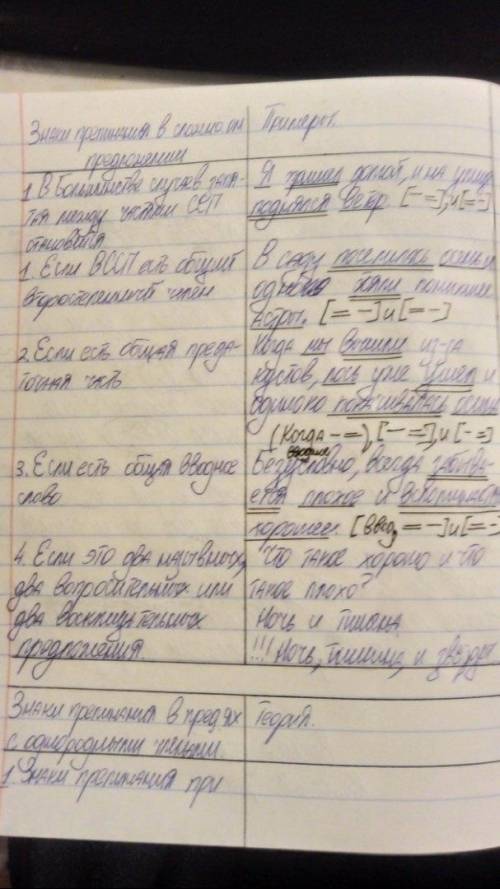 Знаки препинания в сложном
предложении
Примеры.
1. В большинстве случаев запя-
тая между частями ССП
становится
Я пришел домой, и на улице
поднялся ветер. [- =], и [= -]
1. Если В ССП есть общий
второстепенный член
В саду поселилась осень и
одиноко стояли поникшие
астры. [= -] и [= -]
2. Если есть общая прида-
точная часть
Когда мы вышли из-за
кустов, лось уже ушел и
одиноко покачивалась
(Когда - =), [- =], и [- =]
3. Если есть общая вводное
слово
вводное
Безусловно, всегда забыва-
ется плохое и вспоминается
хорошее. [Ввод, = -] и [= -]
4. Если это два назывных,
два вопросительных или
два восклицательных
предложения.
Что такое хорошо и что
такое плохо?
Ночь и тишина.
!!! Ночь, тишина, и звезды
Знаки препинания в пред-ях
с однородными членами.
Теория.
1. Знаки препинания при